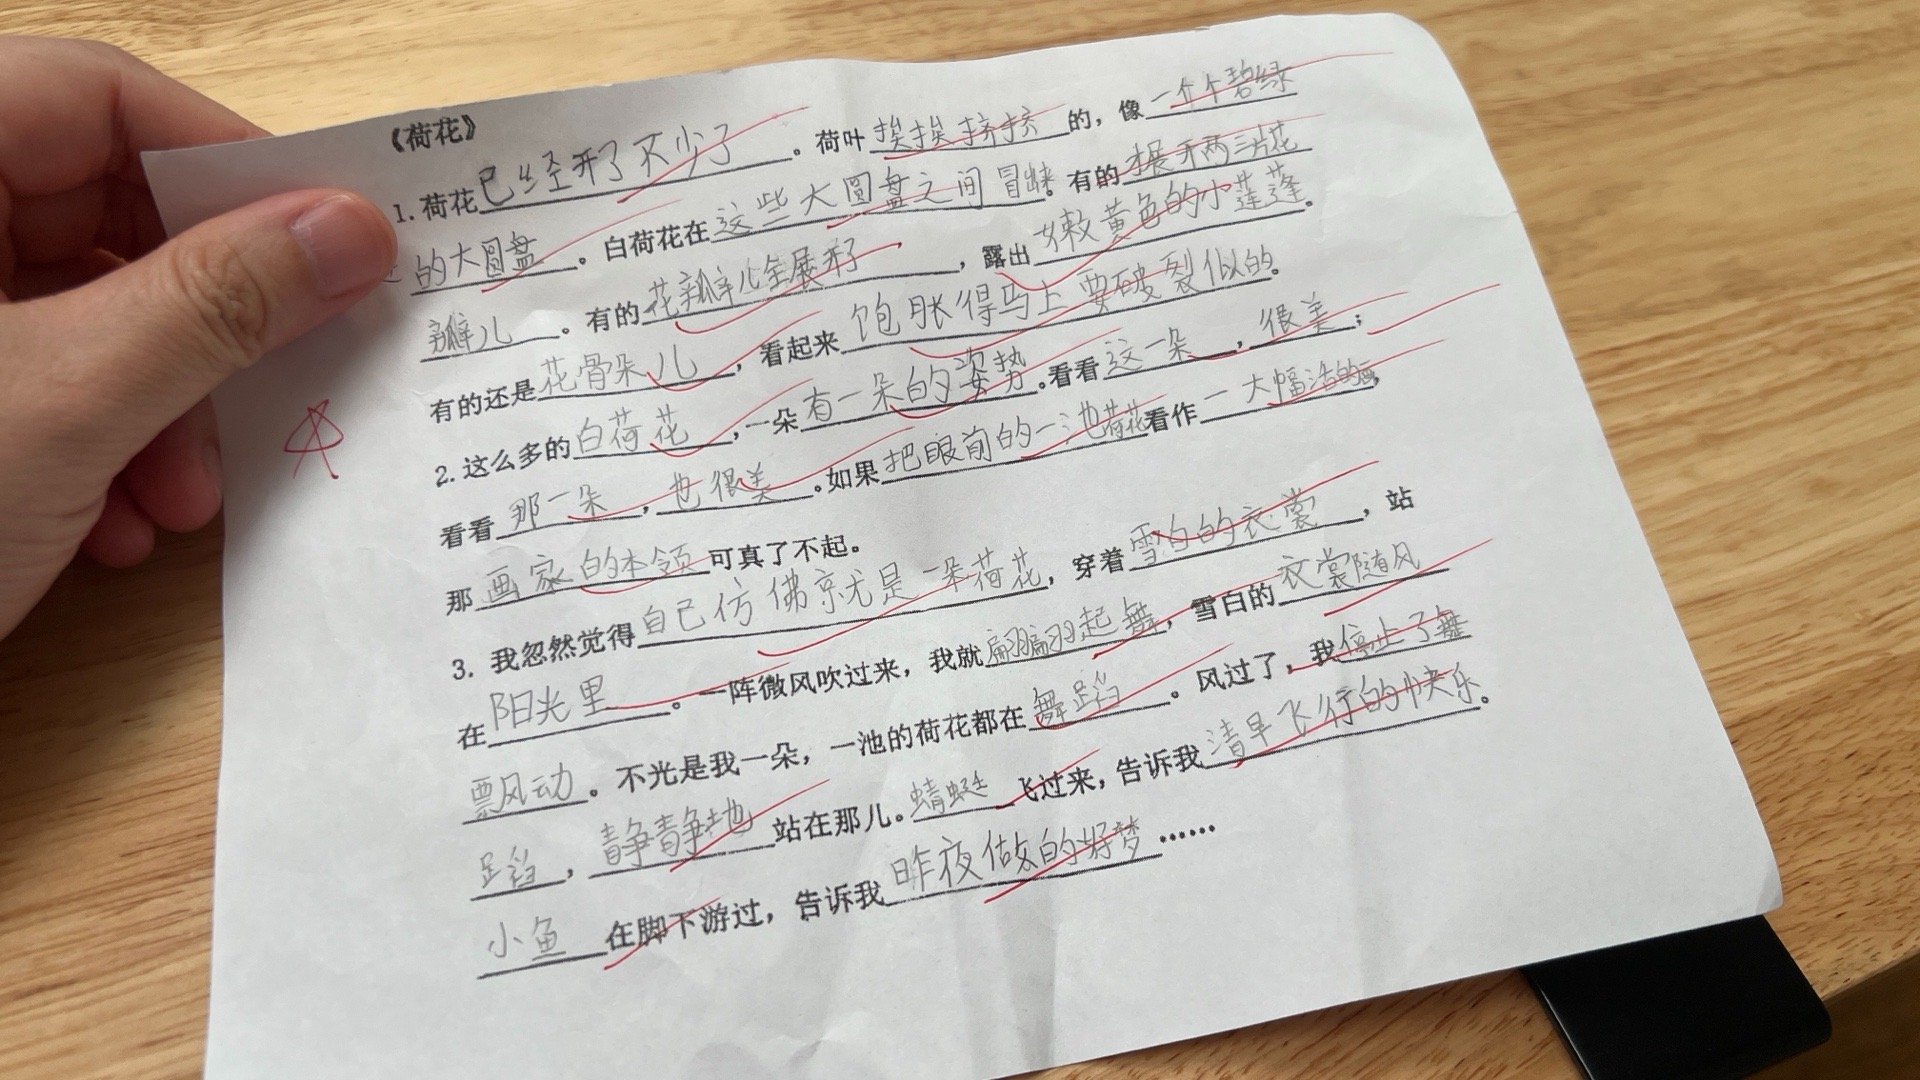 《荷花》
1.荷花已经开了不少了。荷叶挨挨挤挤的，像一个个碧绿
的大圆盘。白荷花在这些大圆盘之间冒出来。有的才展开两三片花
瓣儿。有的花瓣儿全展开了，露出嫩黄色的小莲蓬。
有的还是花骨朵儿，看起来饱胀得马上要破裂似的。
2.这么多的白荷花，一朵有一朵的姿势。看看这一朵，很美；
看看那一朵，也很美。如果把眼前的一池荷花看作一大幅活的画，
那画家的本领可真了不起。
3. 我忽然觉得自己仿佛就是一朵荷花，穿着雪白的衣裳，站
在阳光里。一阵微风吹过来，我就翩翩起舞，雪白的衣裳随风
飘动。不光是我一朵，一池的荷花都在舞蹈。风过了，我停止了舞
蹈，静静地站在那儿。蜻蜓飞过来，告诉我清早飞行的快乐。
小鱼在脚下游过，告诉我昨夜做的好梦……